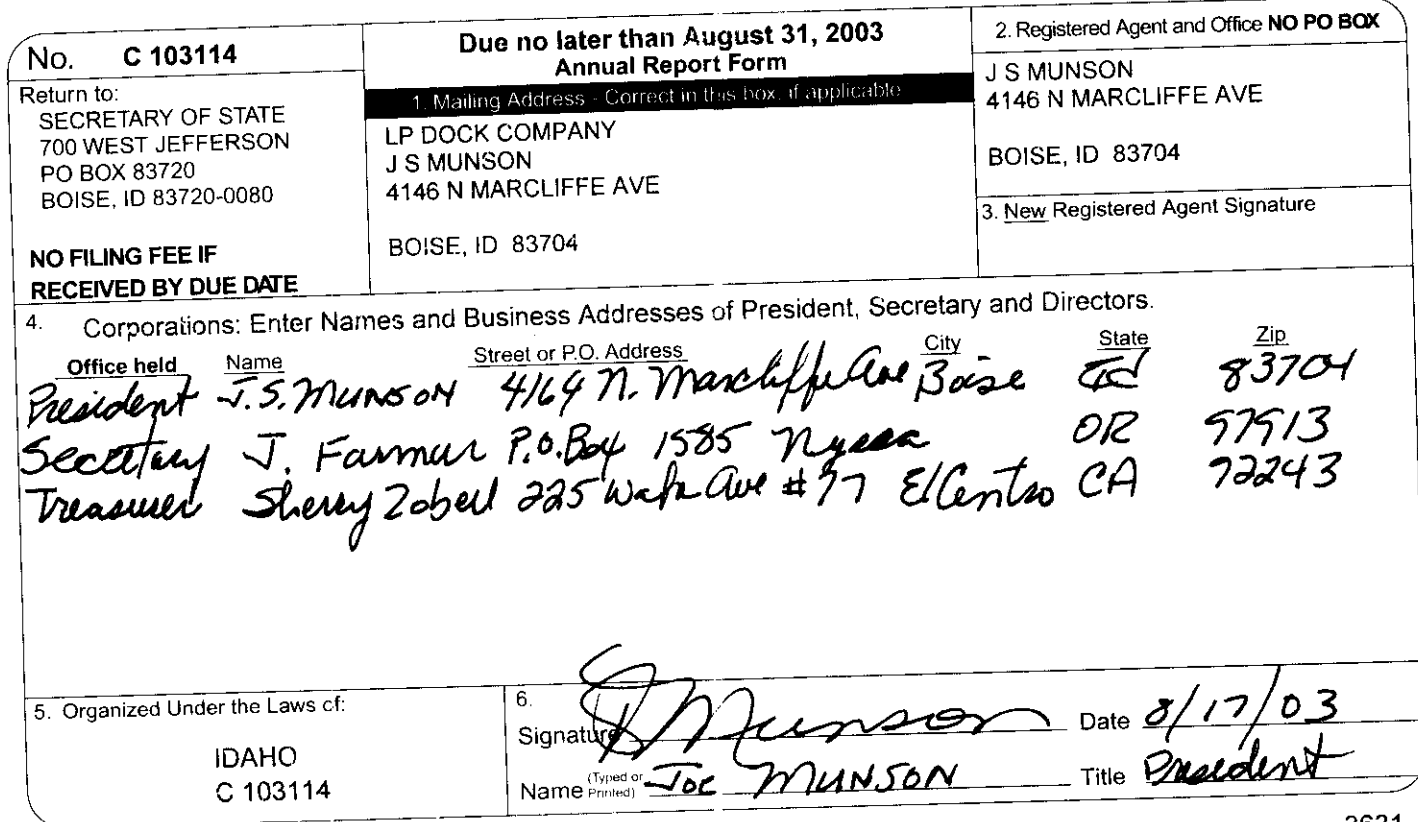 No. C 103114
Return to:
SECRETARY OF STATE
700 WEST JEFFERSON
PO BOX 83720
BOISE, ID 83720-0080
NO FILING FEE IF
RECEIVED BY DUE DATE
Due no later than August 31, 2003
Annual Report Form
1. Mailing Address - Correct in this box, if applicable
LP DOCK COMPANY
J S MUNSON
4146 N MARCLIFFE AVE
BOISE, ID 83704
2. Registered Agent and Office NO PO BOX
J S MUNSON
4146 N MARCLIFFE AVE
BOISE, ID 83704
3. New Registered Agent Signature
4. Corporations: Enter Names and Business Addresses of President, Secretary and Directors.
Office held Name Street or P.O. Address City State Zip
President J.S. MUNSON 4164 N. Marcliffe Ave Boise Id 83704
Secretary J. Farmer P.O. Box 1585 Nyssa OR 97913
Treasurer Sherry Zobell 225 Ave #77 El Centro CA 92243
5. Organized Under the Laws of:
IDAHO
C 103114
6.
Signature Munson Date 8/17/03
Name (Typed or Printed) Joe MUNSON Title President